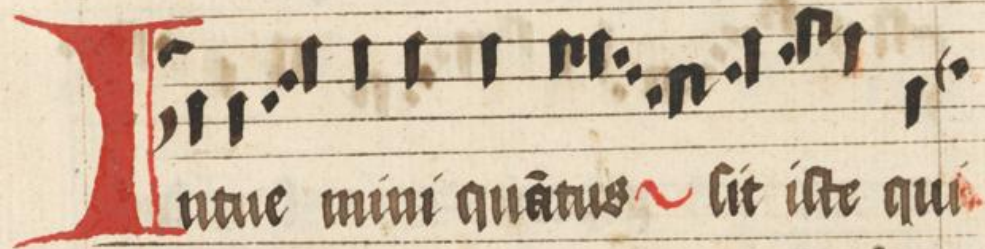 Intue mini quātus ~ sit iste qui